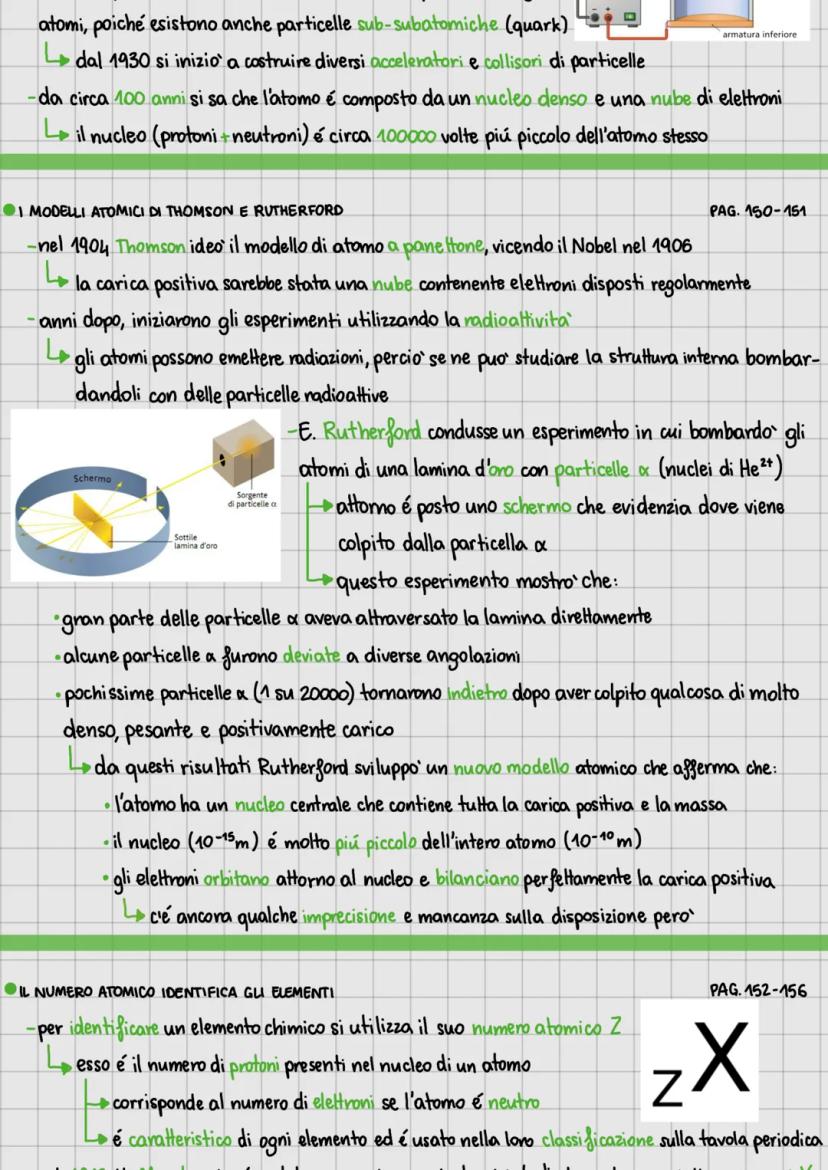 atomi, poiché esistono anche particelle sub-subatomiche (quark)
armatura inferiore
dal 1930 si iniziò a costruire diversi acceleratori e collisori di particelle
-da circa 100 anni si sa che l'atomo é composto da un nucleo denso e una nube di elettroni
il nucleo (protoni+neutroni) é circa 100000 volte piú piccolo dell'atomo stesso
I MODELLI ATOMICI DI THOMSON E RUTHERFORD PAG. 150-151
-nel 1904 Thomson ideò il modello di atomo a panettone, vicendo il Nobel nel 1906
la carica positiva sarebbe stata una nube contenente elettroni disposti regolarmente
-anni dopo, iniziarono gli esperimenti utilizzando la radioattività
gli atomi possono emettere radiazioni, perciò se ne può studiare la struttura interna bombar-
dandoli con delle particelle radioattive
Schermo
Sorgente
di particelle α
Sottile
lamina d'oro
-E. Rutherford condusse un esperimento in cui bombardò gli
atomi di una lamina d'oro con particelle α (nuclei di He²⁺)
attorno é posto uno schermo che evidenzia dove viene
colpito dalla particella α
questo esperimento mostrò che:
•gran parte delle particelle α aveva attraversato la lamina direttamente
•alcune particelle α furono deviate a diverse angolazioni
•pochissime particelle α (1 su 20000) tornarono indietro dopo aver colpito qualcosa di molto
denso, pesante e positivamente carico
da questi risultati Rutherford sviluppò un nuovo modello atomico che afferma che:
•l'atomo ha un nucleo centrale che contiene tutta la carica positiva e la massa
•il nucleo (10⁻¹⁵m) é molto piú piccolo dell'intero atomo (10⁻¹⁰m)
•gli elettroni orbitano attorno al nucleo e bilanciano perfettamente la carica positiva
c'é ancora qualche imprecisione e mancanza sulla disposizione però
IL NUMERO ATOMICO IDENTIFICA GLI ELEMENTI PAG. 152-156
-per identificare un elemento chimico si utilizza il suo numero atomico Z
ZX
esso é il numero di protoni presenti nel nucleo di un atomo
corrisponde al numero di elettroni se l'atomo é neutro
é caratteristico di ogni elemento ed é usato nella loro classificazione sulla tavola periodica